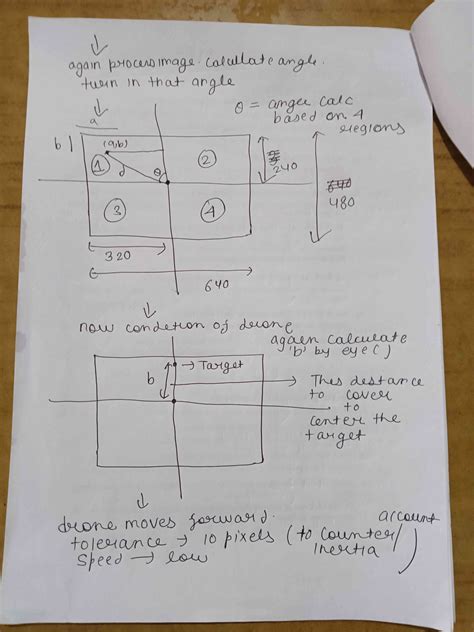 again process image. calculate angle.
turn in that angle
θ = angle calc
based on 4
regions
a
b
(a,b)
1
2
d
θ
240
480
3
4
320
640
now condition of drone
again calculate
'b' by eye()
→ Target
b
This distance
to cover
to
center the
target
drone moves forward.
tolerance → 10 pixels (to counter/account
inertia)
speed → low